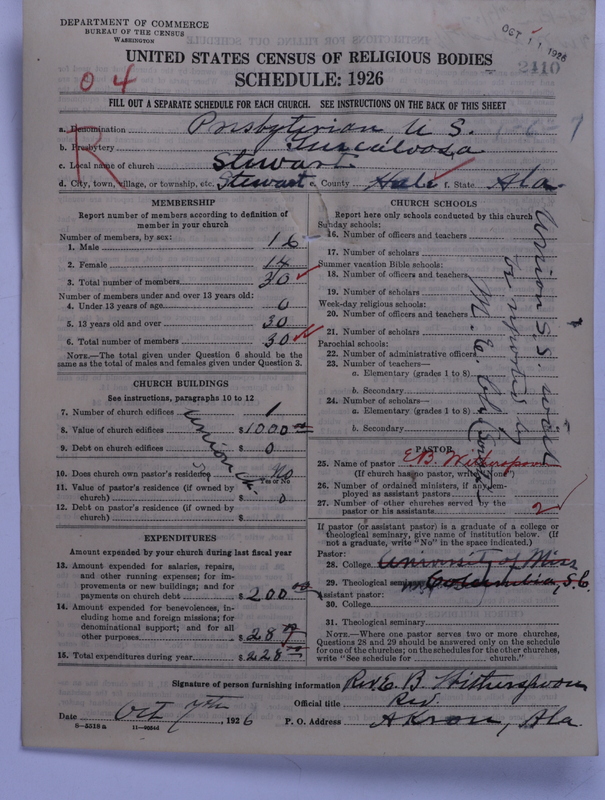 DEPARTMENT OF COMMERCE
BUREAU OF THE CENSUS
WASHINGTON
OCT 11 1926
2410
UNITED STATES CENSUS OF RELIGIOUS BODIES
SCHEDULE: 1926
04
FILL OUT A SEPARATE SCHEDULE FOR EACH CHURCH. SEE INSTRUCTIONS ON THE BACK OF THIS SHEET
R
a. Denomination Presbyterian U S.
b. Presbytery Tuscaloosa
c. Local name of church Stewart
d. City, town, village, or township, etc. Stewart e. County Hale f. State Ala.
MEMBERSHIP
Report number of members according to definition of
member in your church
Number of members, by sex:
1. Male 16
2. Female 14
3. Total number of members 30
Number of members under and over 13 years old:
4. Under 13 years of age 0
5. 13 years old and over 30
6. Total number of members 30
NOTE.—The total given under Question 6 should be the
same as the total of males and females given under Question 3.
CHURCH BUILDINGS
See instructions, paragraphs 10 to 12
7. Number of church edifices 1
8. Value of church edifices $1000.00
9. Debt on church edifices $ 0
Union Ch.
10. Does church own pastor's residence No
Yes or No
11. Value of pastor's residence (if owned by
church) $ 0
12. Debt on pastor's residence (if owned by
church) $
EXPENDITURES
Amount expended by your church during last fiscal year
13. Amount expended for salaries, repairs,
and other running expenses; for im-
provements or new buildings; and for
payments on church debt $200.00
14. Amount expended for benevolences, in-
cluding home and foreign missions; for
denominational support; and for all
other purposes $28
15. Total expenditures during year $228
CHURCH SCHOOLS
Report here only schools conducted by this church
Sunday schools:
16. Number of officers and teachers
17. Number of scholars
Summer vacation Bible schools:
18. Number of officers and teachers
19. Number of scholars
Week-day religious schools:
20. Number of officers and teachers
21. Number of scholars
Parochial schools:
22. Number of administrative officers
23. Number of teachers—
a. Elementary (grades 1 to 8)
b. Secondary
24. Number of scholars—
a. Elementary (grades 1 to 8)
b. Secondary
Union S.S. which
is reported by
M. E. Ch.
PASTOR
25. Name of pastor E.B. Witherspoon
(If church has no pastor, write "None")
26. Number of ordained ministers, if any, em-
ployed as assistant pastors
27. Number of other churches served by the
pastor or his assistants 2
If pastor (or assistant pastor) is a graduate of a college or
theological seminary, give name of institution below. (If
not a graduate, write "No" in the space indicated.)
Pastor:
28. College University of Miss
29. Theological seminary Columbia, S.C.
Assistant pastor:
30. College
31. Theological seminary
NOTE.—Where one pastor serves two or more churches,
Questions 28 and 29 should be answered only on the schedule
for one of the churches; on the schedules for the other churches,
write "See schedule for church."
Signature of person furnishing information Rev. E. B. Witherspoon
Official title Rev.
Date Oct 7th, 1926 P. O. Address Akron, Ala.
8—5518a 11—9054d